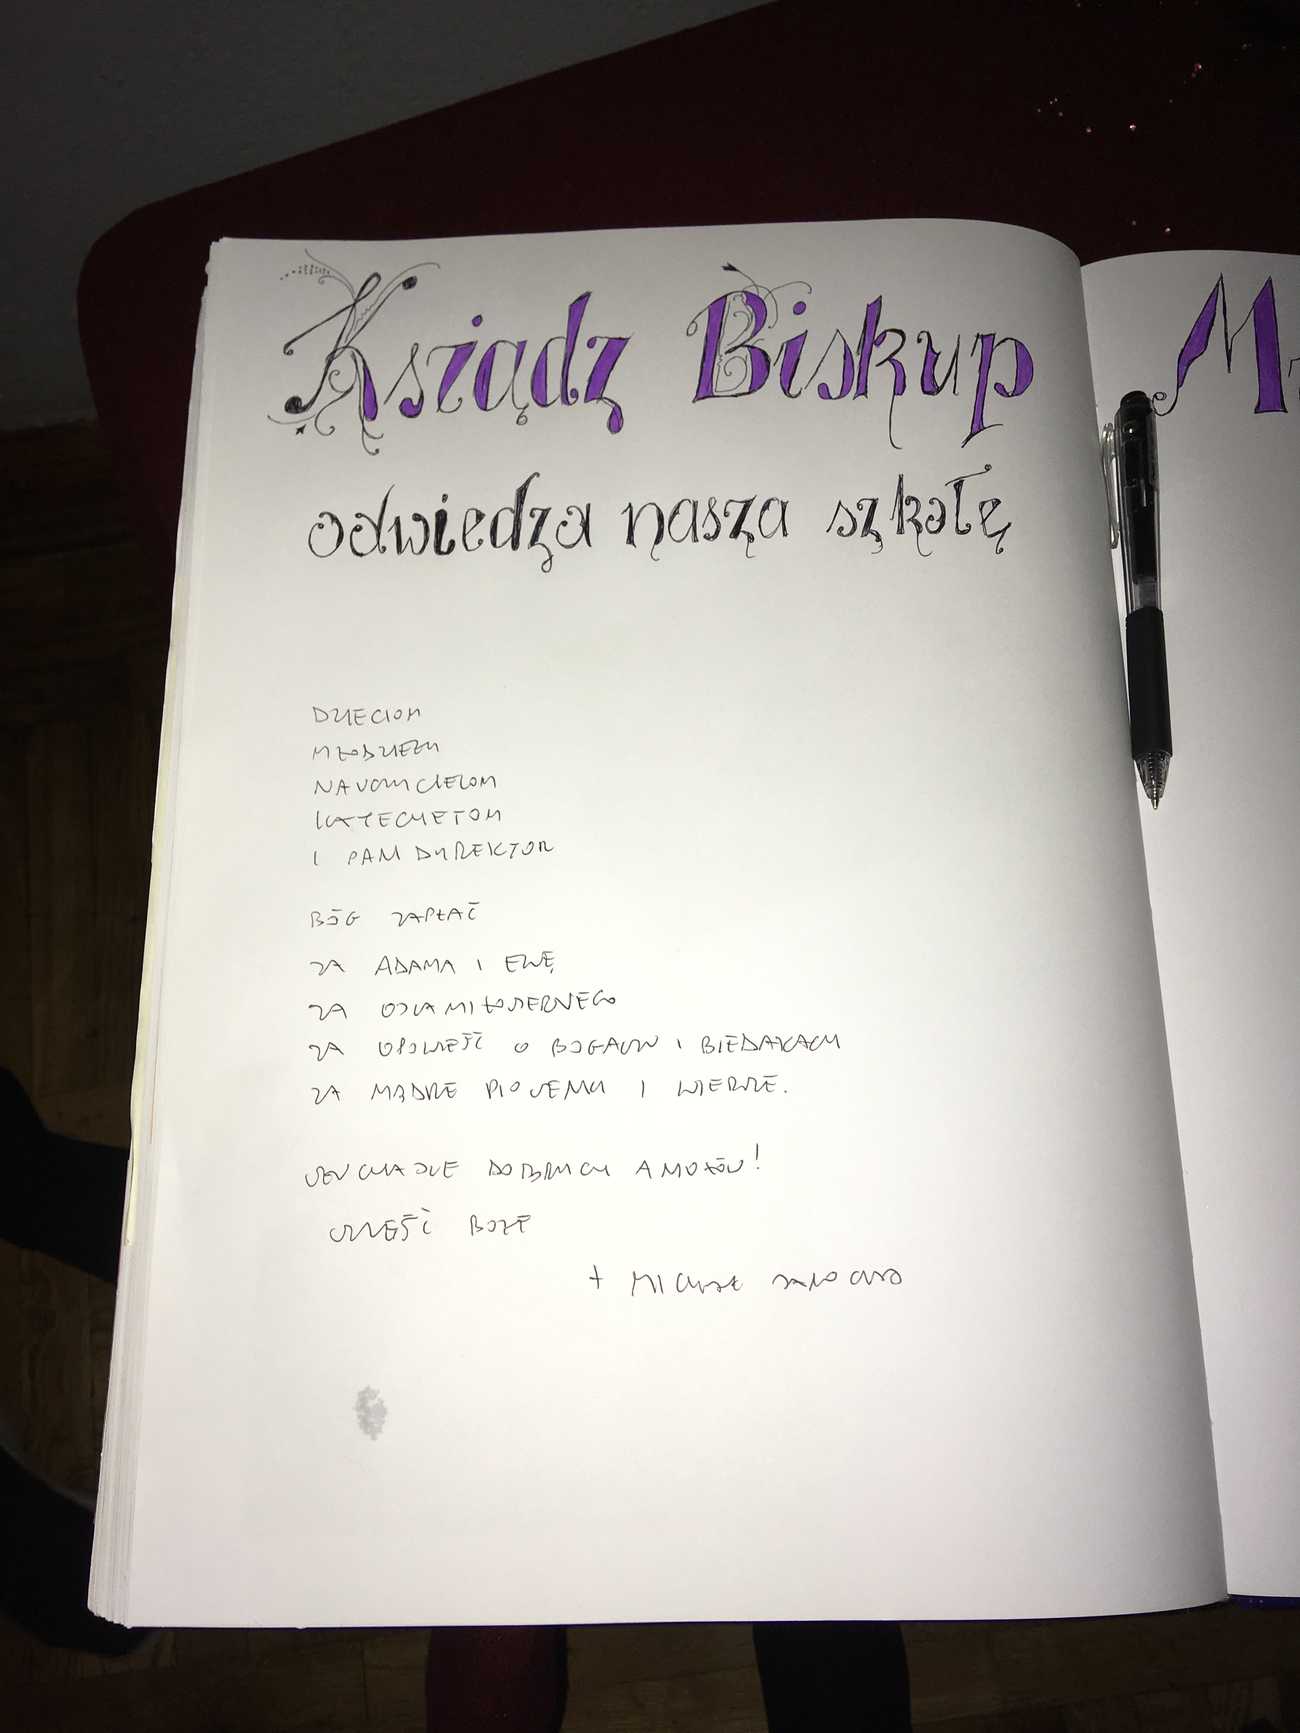 Ksiądz Biskup
odwiedza naszą szkołę
DZIECIOM
MŁODZIEŻY
NAUCZYCIELOM
KATECHETOM
I PANI DYREKTOR
BÓG ZAPŁAĆ
ZA ADAMA I EWĘ
ZA OJCA MIŁOSIERNEGO
ZA OPOWIEŚĆ O BOGACZU I BIEDAKACH
ZA MĄDRE PIOSENKI I WIERSZE.
DOBRYCH ANIOŁÓW!
SZCZĘŚĆ BOŻE
+ MICHAŁ JANOCHA
M